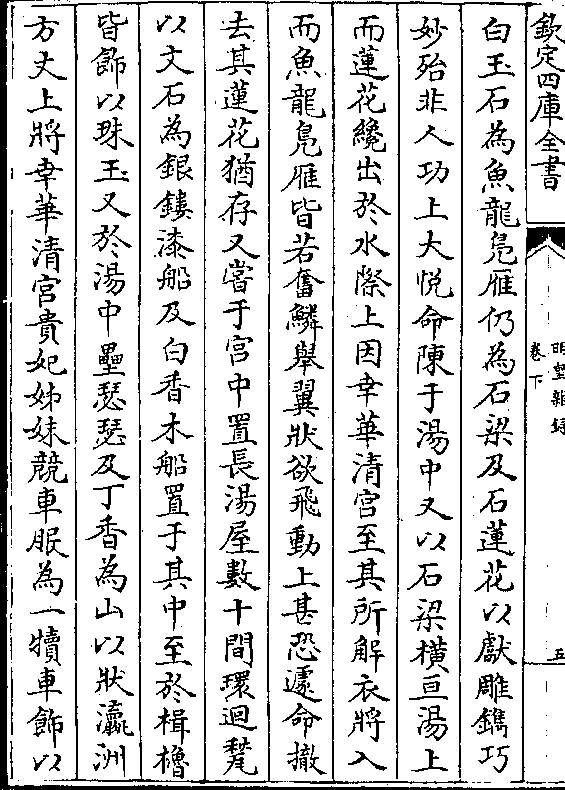 欽定四庫全書
明皇雜録
卷下
五
白玉石為魚龍鳬雁仍為石梁及石蓮花以獻雕鐫巧
妙殆非人功上大悦命陳于湯中又以石梁横亘湯上
而蓮花纔出於水際上因幸華清宫至其所解衣將入
而魚龍鳬雁皆若奮鱗舉翼狀欲飛動上甚恐遽命撤
去其蓮花猶存又嘗于宫中置長湯屋數十間環迴甃
以文石為銀鏤漆船及白香木船置于其中至於楫櫓
皆飾以珠玉又於湯中壘瑟瑟及丁香為山以狀瀛洲
方丈上將幸華清宫貴妃姊妹競車服為一犢車飾以